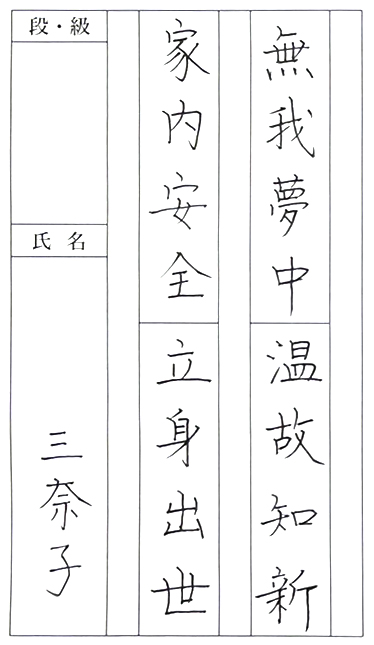 無我夢中
温故知新
家内安全
立身出世
段・級
氏名
三奈子